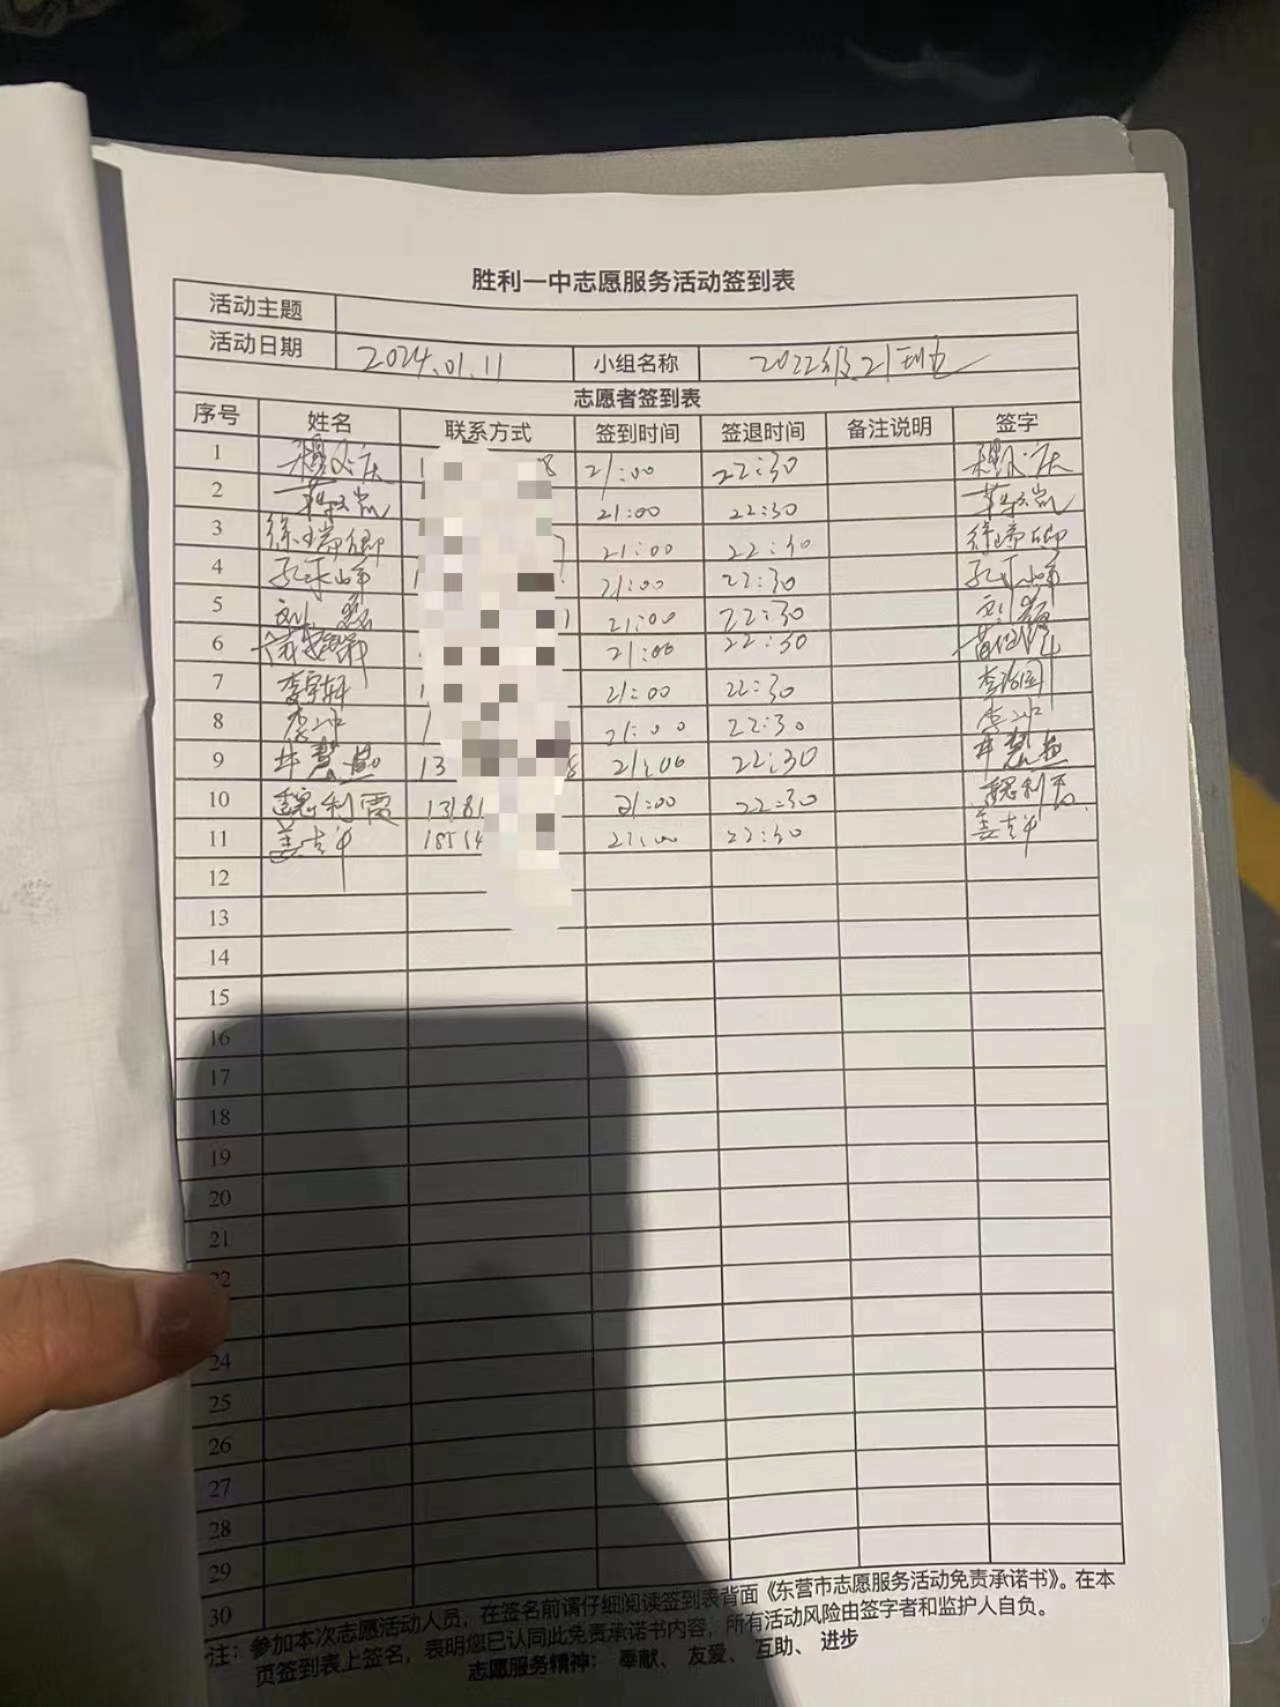 胜利一中志愿服务活动签到表
活动主题
活动日期 2024.01.11 小组名称 2022级21班
志愿者签到表
序号 姓名 联系方式 签到时间 签退时间 备注说明 签字
1 8 21:00 22:30
2 21:00 22:30
3 徐瑞卿 21:00 22:30 徐瑞卿
4 21:00 22:30
5 刘 21:00 22:30 刘
6 21:00 22:30
7 李宇轩 21:00 22:30
8 李冲 21:00 22:30 李冲
9 井慧燕 13 8 21:00 22:30 井慧燕
10 魏利霞 13181 21:00 22:30 魏利霞
11 姜 18554 21:00 22:30 姜
12
13
14
15
16
17
18
19
20
21
22
24
25
26
27
28
29
30
注：参加本次志愿活动人员，在签名前请仔细阅读签到表背面《东营市志愿服务活动免责承诺书》。在本
页签到表上签名，表明您已认同此免责承诺书内容，所有活动风险由签字者和监护人自负。
志愿服务精神：奉献、友爱、互助、进步